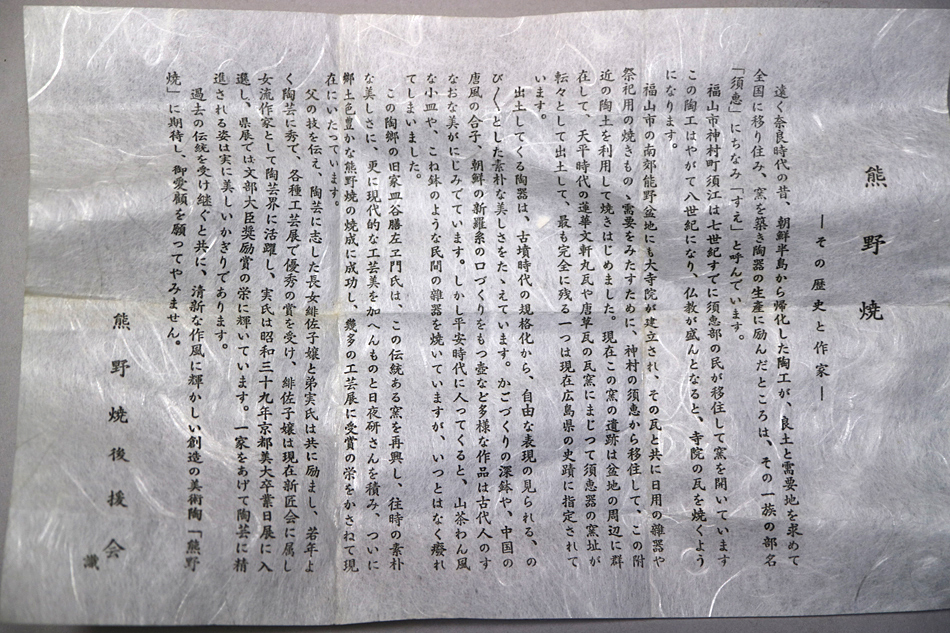 熊野焼
―その歴史と作家―
遠く奈良時代の昔、朝鮮半島から帰化した陶工が、良土と需要地を求めて
全国に移り住み、窯を築き陶器の生産に励んだところは、その一族の部名
「須恵」にちなみ「すえ」と呼んでいます。
福山市神村町須江は七世紀すでに須恵部の民が移住して窯を開いています
この陶工はやがて八世紀になり、仏教が盛んとなると、寺院の瓦を焼くよう
になります。
福山市の南郊熊野盆地にも大寺院が建立され、その瓦と共に日用の雑器や
祭祀用の焼きものゝ需要をみたすために、神村の須恵から移住して、この附
近の陶土を利用して焼きはじめました。現在この窯の遺跡は盆地の周辺に群
在して、天平時代の蓮華文軒丸瓦や唐草瓦の瓦窯にまじつて須恵器の窯址が
転々として出土して、最も完全に残る一つは現在広島県の史蹟に指定されて
います。
出土してくる陶器は、古墳時代の規格化から、自由な表現の見られる、の
び〳〵とした素朴な美しさをたゝえています。かごづくりの深鉢や、中国の
唐風の合子、朝鮮の新羅系の口づくりをもつ壺など多様な作品は古代人のす
なおな美がにじみでています。しかし平安時代に入つてくると、山茶わん風
な小皿や、こね鉢のような民間の雑器を焼いていますが、いつとはなく癈れ
てしまいました。
この陶郷の旧家皿谷勝左ヱ門氏は、この伝統ある窯を再興し、往時の素朴
な美しさに、更に現代的な工芸美を加へんものと日夜研さんを積み、ついに
郷土色豊かな熊野焼の焼成に成功し、幾多の工芸展に受賞の栄をかさねて現
在にいたつています。
父の技を伝え、陶芸に志した長女緋佐子嬢と弟実氏は共に励まし、若年よ
く陶芸に秀て、各種工芸展で優秀の賞を受け、緋佐子嬢は現在新匠会に属し
女流作家として陶芸界に活躍し、実氏は昭和三十九年京都美大卒業日展に入
選し、県展では文部大臣奨励賞の栄に輝いています。一家をあげて陶芸に精
進される姿は実に美しいかぎりであります。
過去の伝統を受け継ぐと共に、清新な作風に輝かしい創造の美術陶「熊野
焼」に期待し、御愛顧を願つてやみません。
熊野焼後援会
識